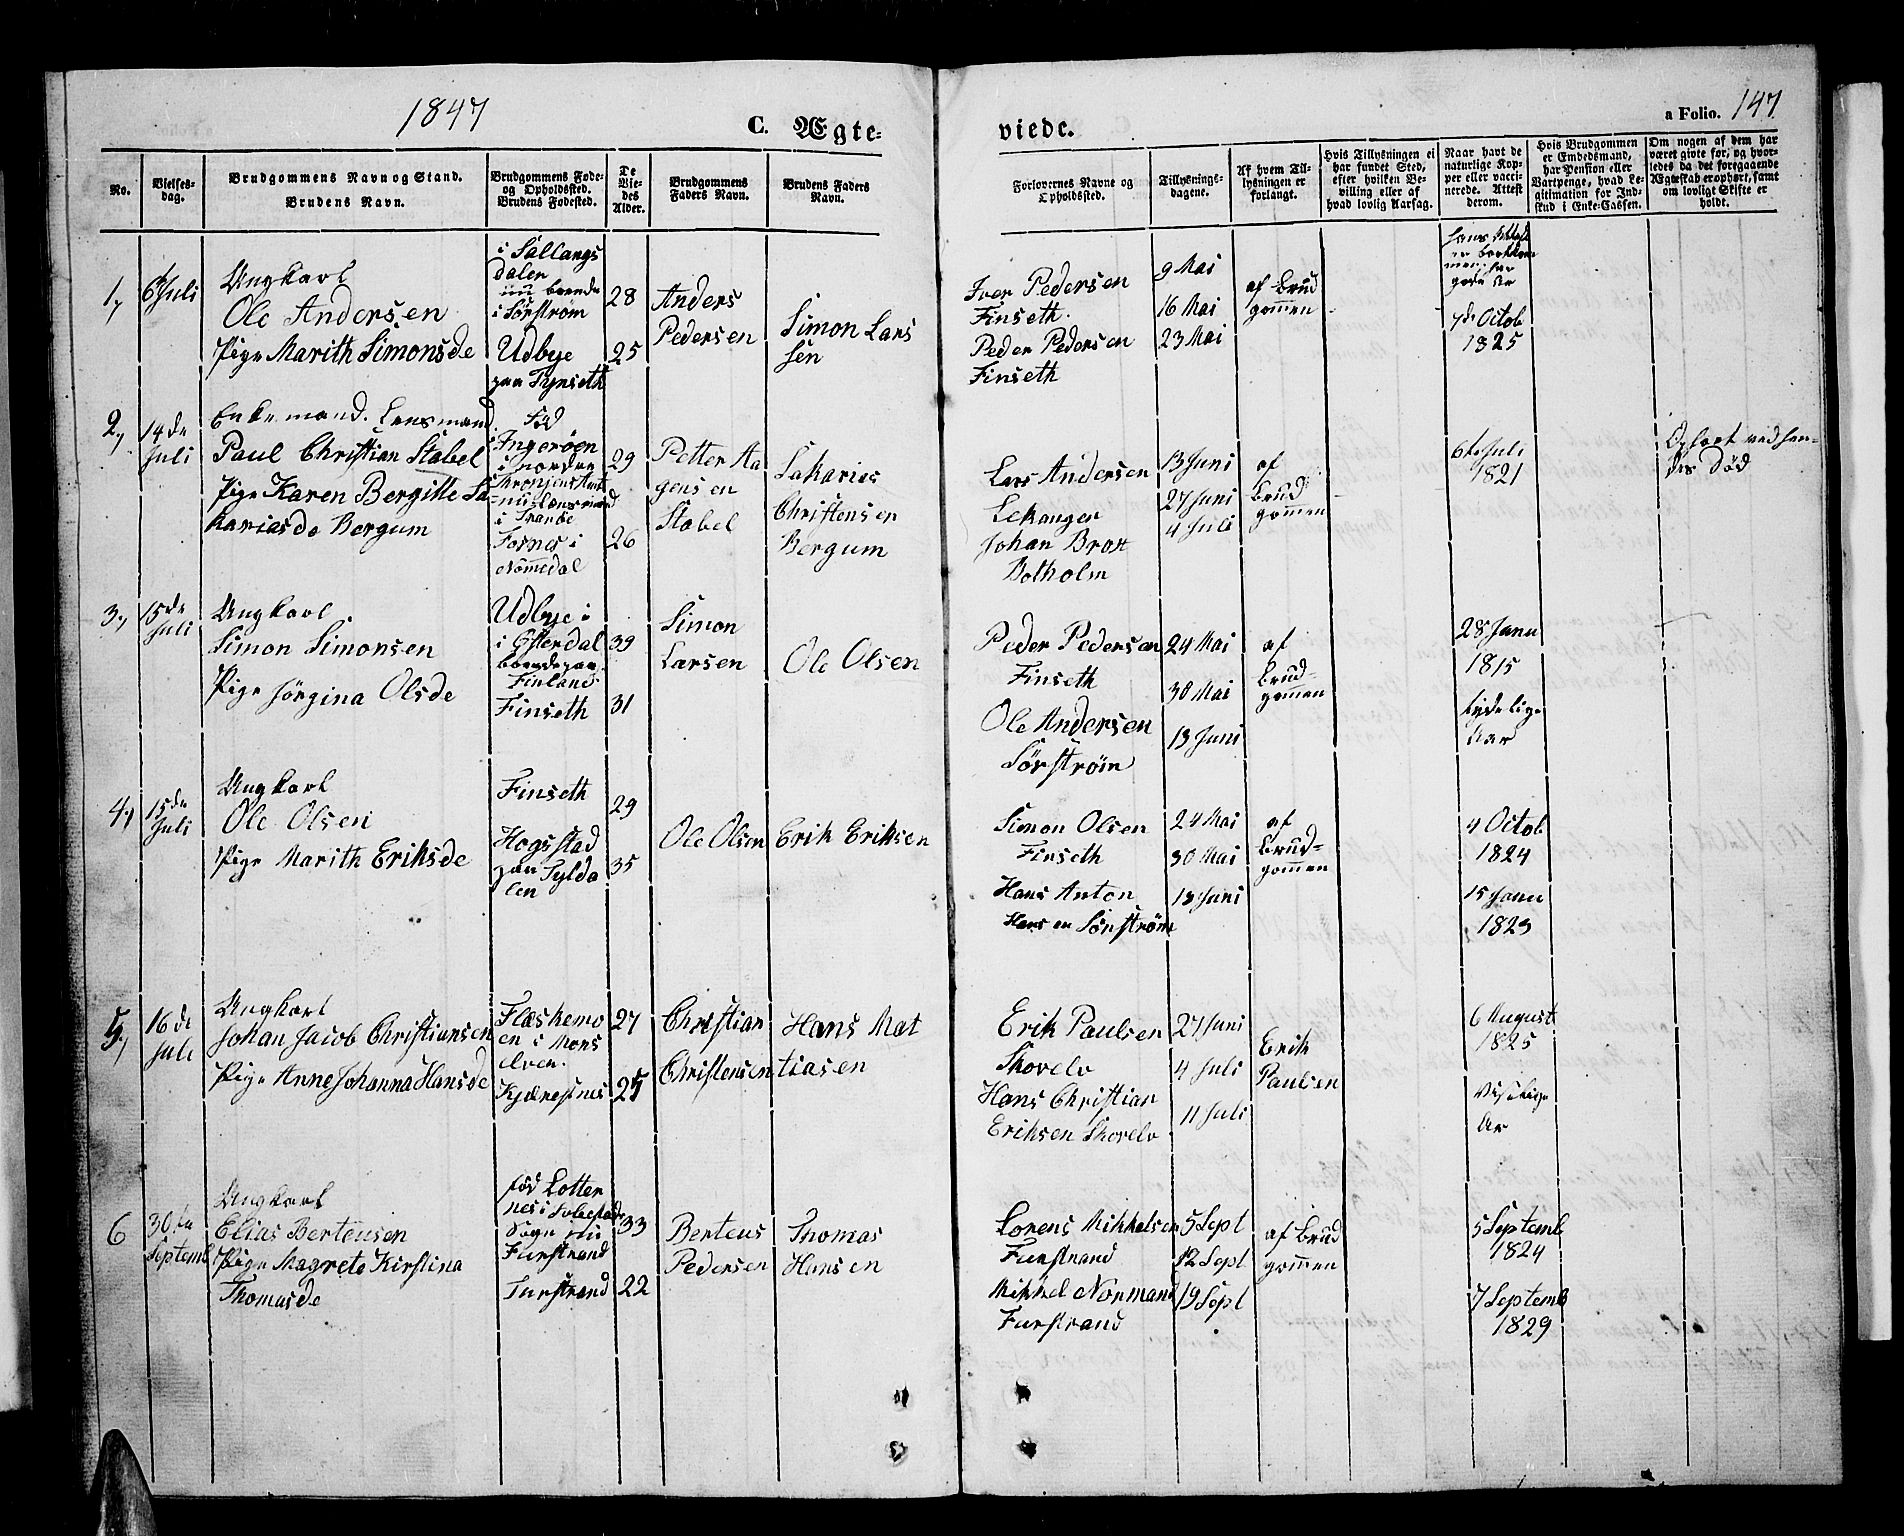 1847
C. Ægte-
viede.
a Folio. 147
No.
Vielses-
dag.
Brudgommens Navn og Stand.
Brudens Navn.
Brudgommens Føde-
og Opholdssted.
Brudens Fødested.
De
Vie-
des
Alder.
Brudgommens
Faders Navn.
Brudens Faders
Navn.
Forlovernes Navne og
Opholdssted.
Tillysnings-
dagene.
Af hvem Til-
lysningen er
forlangt.
Hvis Tillysningen ei
har fundet Sted,
efter hvilken Be-
villing eller af
hvad lovlig Aarsag.
Naar havt de
naturlige Kop-
per eller vacci-
nerede. Attest
derom.
Hvis Brudgommen
er Embedsmand,
har Pension eller
Vartpenge, hvad Le-
gitimation for Ind-
skud i Enke-Cassen.
Om nogen af dem har
været givte før, og hvor-
ledes da det foregaaende
Ægteskab er ophørt, samt
om lovligt Skifte er
holdt.
1,
6 Juli
Ungkarl
Ole Andersen
Pige Marith Simonsde
i Sallangs
dalen
nu boende
i Sørstrøm
Udbye
paa Tynseth
28
25
Anders
Pedersen
Simon Lars
sen
Iver Pedersen
Finseth.
Peder Pedersen
Finseth
9 Mai
16 Mai
23 Mai
af Brud
gommen
7de Octob
1825
2,
14de
Juli
Enkemand. Lensmand
Paul Christian Stabel
Pige Karen Bergitte Sa-
kariasde Bergum
Fød
Ingerøen
i nordre
Thronjens Amt
nu Lænsmand
i Tranøe
Fosnes i
Nommedal
29
26
Petter Aa
gensen
Stabel
Sakarias
Christensen
Bergum
Lars Andersen
Lekanger
Johan Brox
Botholm
13 Juni
27 Juni
4 Juli
af
Brud
gommen
6te Juli
1821
Ophørt ved hen-
des Død
3,
15de
Juli
Ungkarl
Simon Simonsen
Pige Jørgina Olsde
Udbye i
i Østerdal
boende paa
Finland
Finseth
39
31
Simon
Larsen
Ole Olsen
Peder Pedersen
Finseth
Ole Andersen
Sørstrøm
24 Mai
30 Mai
13 Juni
af
Brud-
gommen
28 Janu
1815
tydelige
Aar
4,
15de
Juli
Ungkarl
Ole Olsen
Pige Marith Eriksde
Finseth
Hogsstad
paa Tylda
len
29
35
Ole Olsen
Erik Eriksen
Simon Olsen
Finseth
Hans Anton
Hansen Sørstrøm
24 Mai
30 Mai
13 Juni
af
Brud-
gommen
4 Octob
1824
15 Janu
1823
5,
16de
Juli
Ungkarl
Johan Jacob Christiansen
Pige Anne Johanna Hansde
Flæskemo
en i Mons
elven.
Kjærestnes
27
25
Christian
Christensen
Hans Mat
tiasen
Erik Paulsen
Skovelv
Hans Christian
Eriksen Skovelv
27 Juni
4 Juli
11 Juli
Erik
Paulsen
6 August
1825
Ar
6
30te
Septemb
Ungkarl
Elias Berteusen
Pige Magrete Kirstina
Thomasde
fød Lotter
nes i
Sogn nu
Furstrand
Furstrand
33
22
Berteus
Pedersen
Thomas
Hansen
Lorens Mikkelsen
Furstrand
Mikkel Normand
Furstrand
5 Sept
12 Sept
19 Sept
af Brud
gommen
5 Septemb
1824
7 Septemb
1829